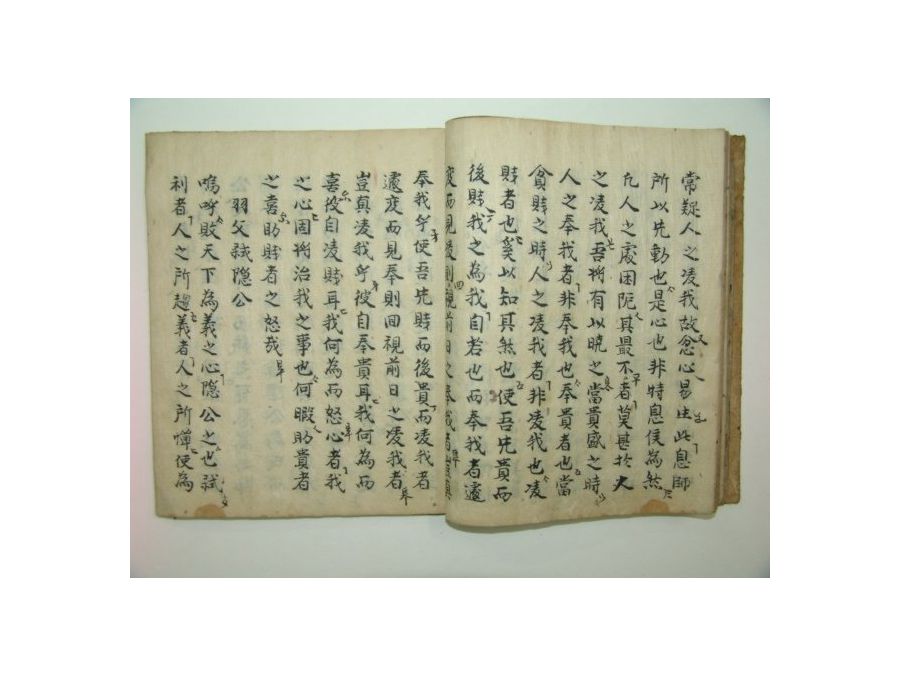 常疑人之凌我故忿心易生此息師
所以先動也是心也非特息侯為然
凡人之處困阨其最不者莫甚於夫
之凌我吾將有以曉之當貴盛之時
人之奉我者非奉我也奉貴者也當
貧賤之時人之凌我者非凌我也凌
賤者也奚以知其然也使吾先貴而
後賤我之為我自若也而奉我者遽
變而見凌則視前日之奉我者豈真
奉我乎使吾先賤而後貴而凌我者
遽變而見奉則回視前日之凌我者
豈真凌我乎彼自奉貴耳我何為而
喜彼自凌賤耳我何為而怒心者我
之心固將治我之事也何暇助貴者
之喜助賤者之怒哉
公羽父弑隱公
嗚呼敗天下為義之心隱公之也弑
利者人之所趨義者人之所憚使為